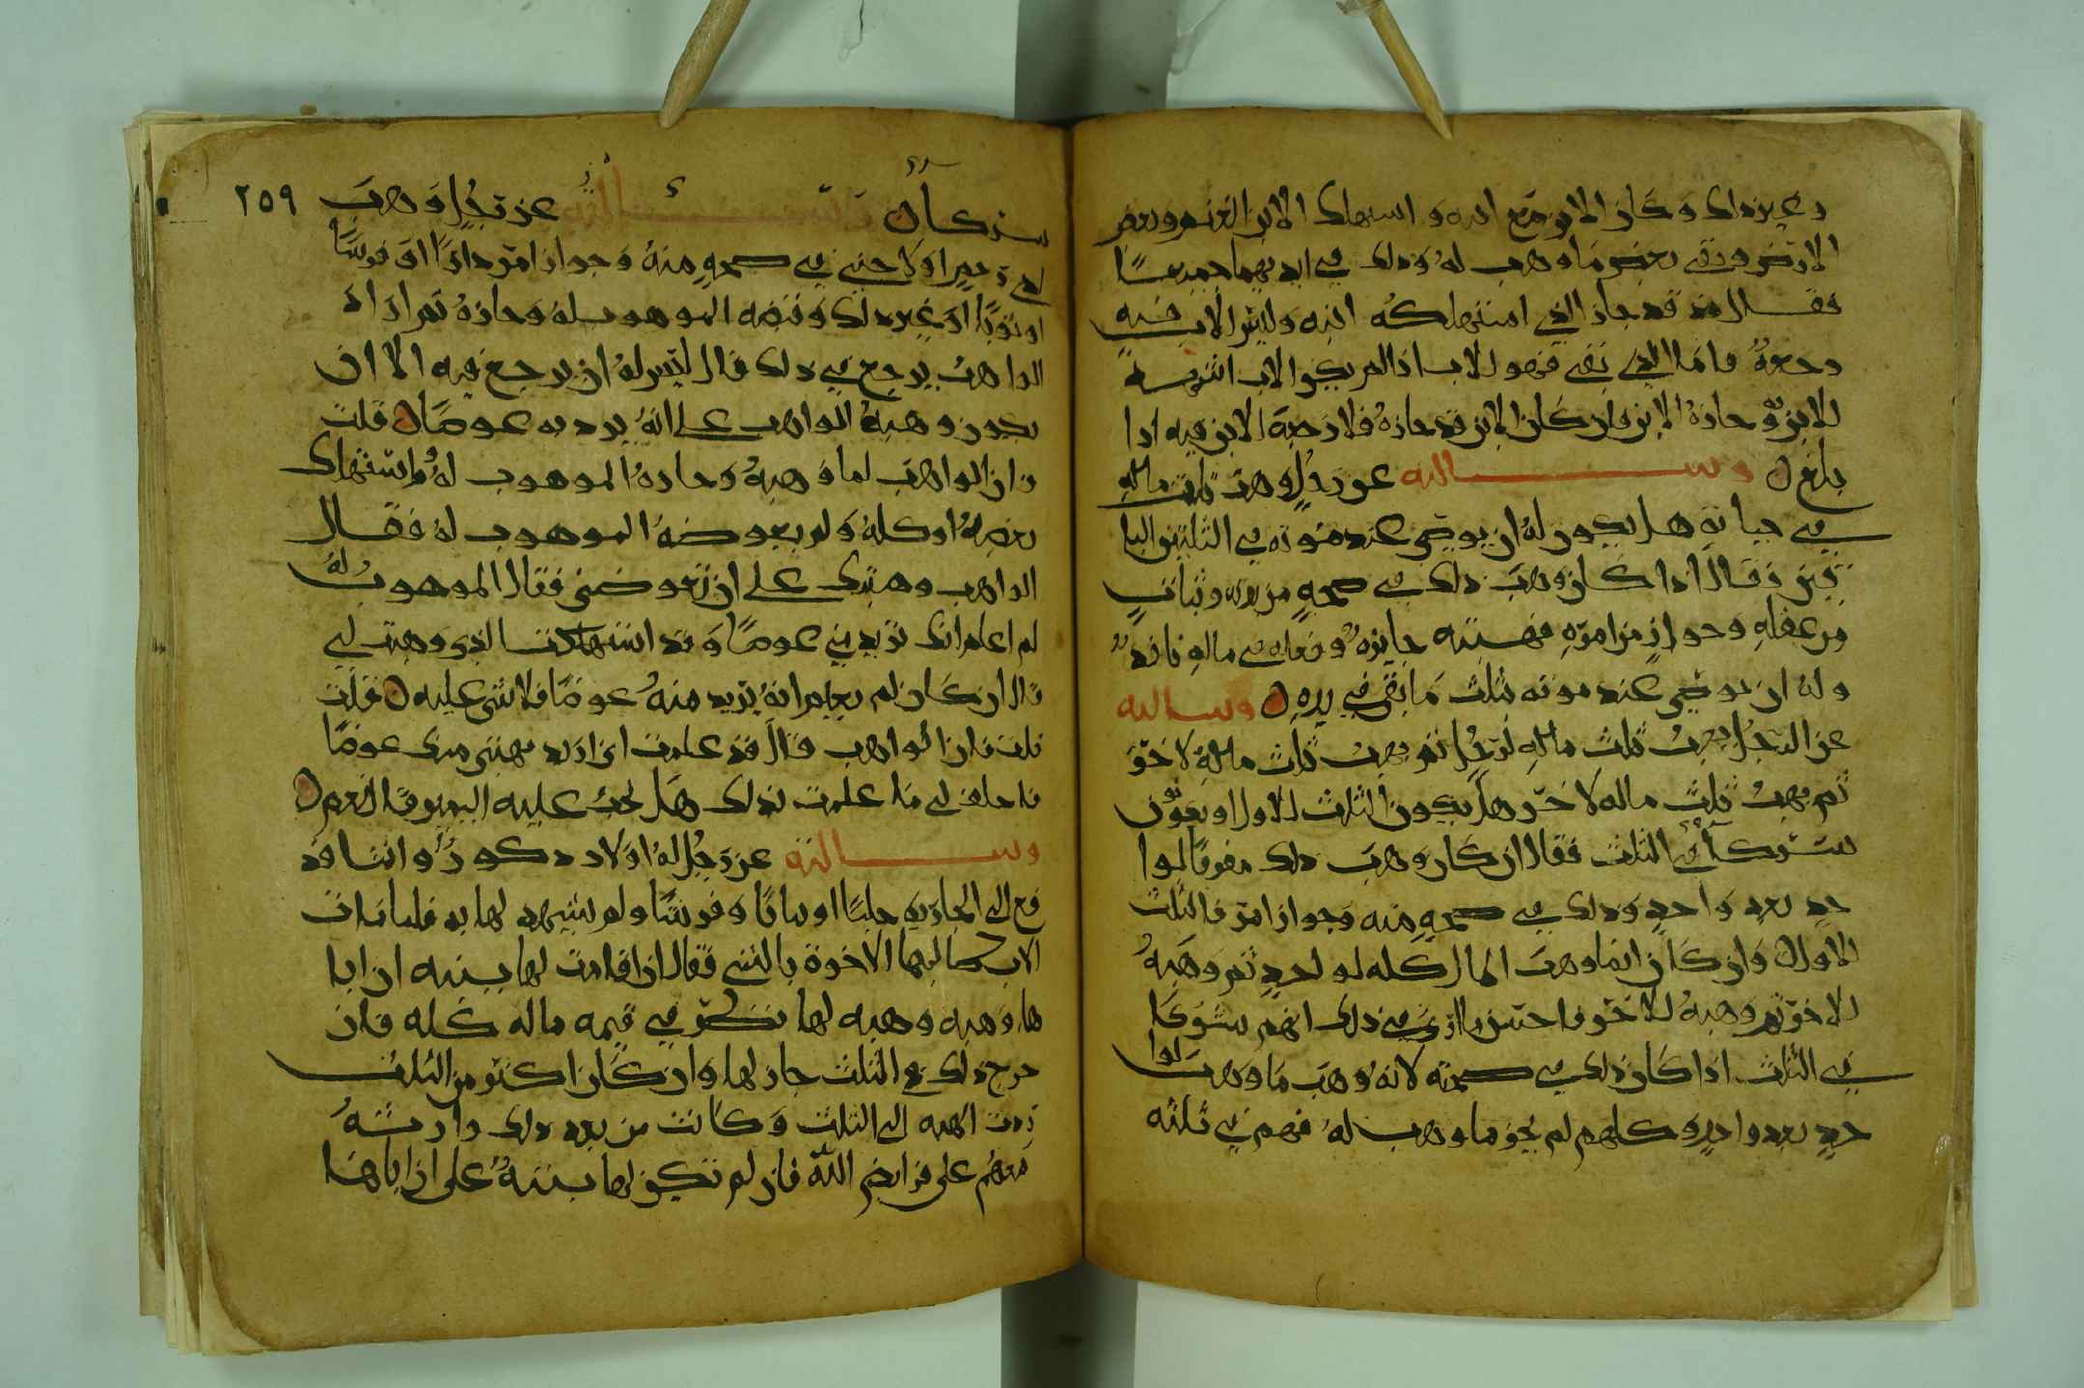 وغير ذلك وكان الابن مع ابيه واستهلك الابن الغنم وبعض
الارض وبقي بعض ما وهب له وذلك في ايديهما جميعا
فقال قد جاز الذي استهلكه ابنه وليس للاب فيه
رجعة فاما الذي بقي فهو للاب اذا لم يكن الاب
للابن و حازه الابن وان كان الابن قد حازه فلا رجعة لابن فيه اذا
بلغ وسالته عن رجل وهب ثلث ماله
في حياته هل يكون له ان يوصي عند موته في الثلثين البا
قيين فقال اذا كان وهب ذلك في صحة من بدنه وثبات
من عقله وجواز من امره فهبته جايزة وفعله في ماله نافذ
وله ان يوصي عند موته بثلث ما بقي في يده وسالته
عن الرجل يهب ثلث ماله لرجل ثم يهب ثلث ماله لاخر
ثم يهب ثلث ماله لاخر هل يكون الثلث للاول او يكونون
شركا في الثلث فقال ان كان وهب ذلك مفرقا لوا
حد بعد واحد وذلك في صحة منه وجواز امر فالثلث
للاول وان كان انما وهب المال كله لواحد ثم وهبه
للاخر ثم وهبه للاخر فاحسن ما ارى في ذلك انهم شركا
في الثلث اذا كان ذلك في صحته لانه وهب ما وهب لوا
حد بعد واحد وكلهم لم يحز ما وهب له فهم في ثلثه
شركا وسالته عن رجل وهب ٢٥٩
لذي رحم او لاجنبي في صحة منه وجواز امر دارا او فرسا
او ثوبا او غير ذلك وقبضه الموهوب له وحازه ثم اراد
الواهب يرجع في ذلك قال ليس له ان يرجع فيه الا ان
يكون وهبه الواهب على انه يرد به عوضا قلت
فان الواهب لما وهبه وحازه الموهوب له واستهلك
بعضه او كله ولم يعوضه الموهوب له فقال
الواهب وهبتك على ان تعوضني فقال الموهوب له
لم اعلم انك تريد مني عوضا وقد استهلكت الذي وهبت لي
قال ان كان لم يعلم انه يريد منه عوضا فلا شي عليه فقلت
قلت فان الواهب قال قد علمت اني اريد بهبتي منك عوضا
فاحلف لي ما علمت بذلك هل يجب عليه اليمين قال نعم
وسالته عن رجل له اولاد ذكور واناث فد
فع الى الجارية حليا او ثيابا وفرشا ولم يشهد لها به فلما مات
الاب طالبها الاخوة بالشي فقال ان اقامت لها بينه ان ابا
ها وهبه وهبه لها نظر في قيمه ماله كله فان
خرج ذلك مع الثلث جاز لها وان كان اكثر من الثلث
ردت الهبه الى الثلث وكانت من بعد ذلك وارثه
معهم على فرايض الله فان لم تكن لها بينة على ان اباها